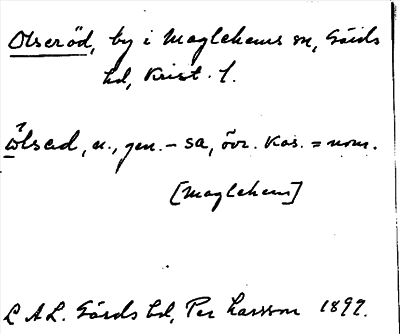 Olseröd, by i Maglehems sn, Gärds
hd, Krist. l.
n., gen. - sa, övr. kas. = nom.
[Maglehem]
L A L. Gärds hd, Per Larsson 1897.